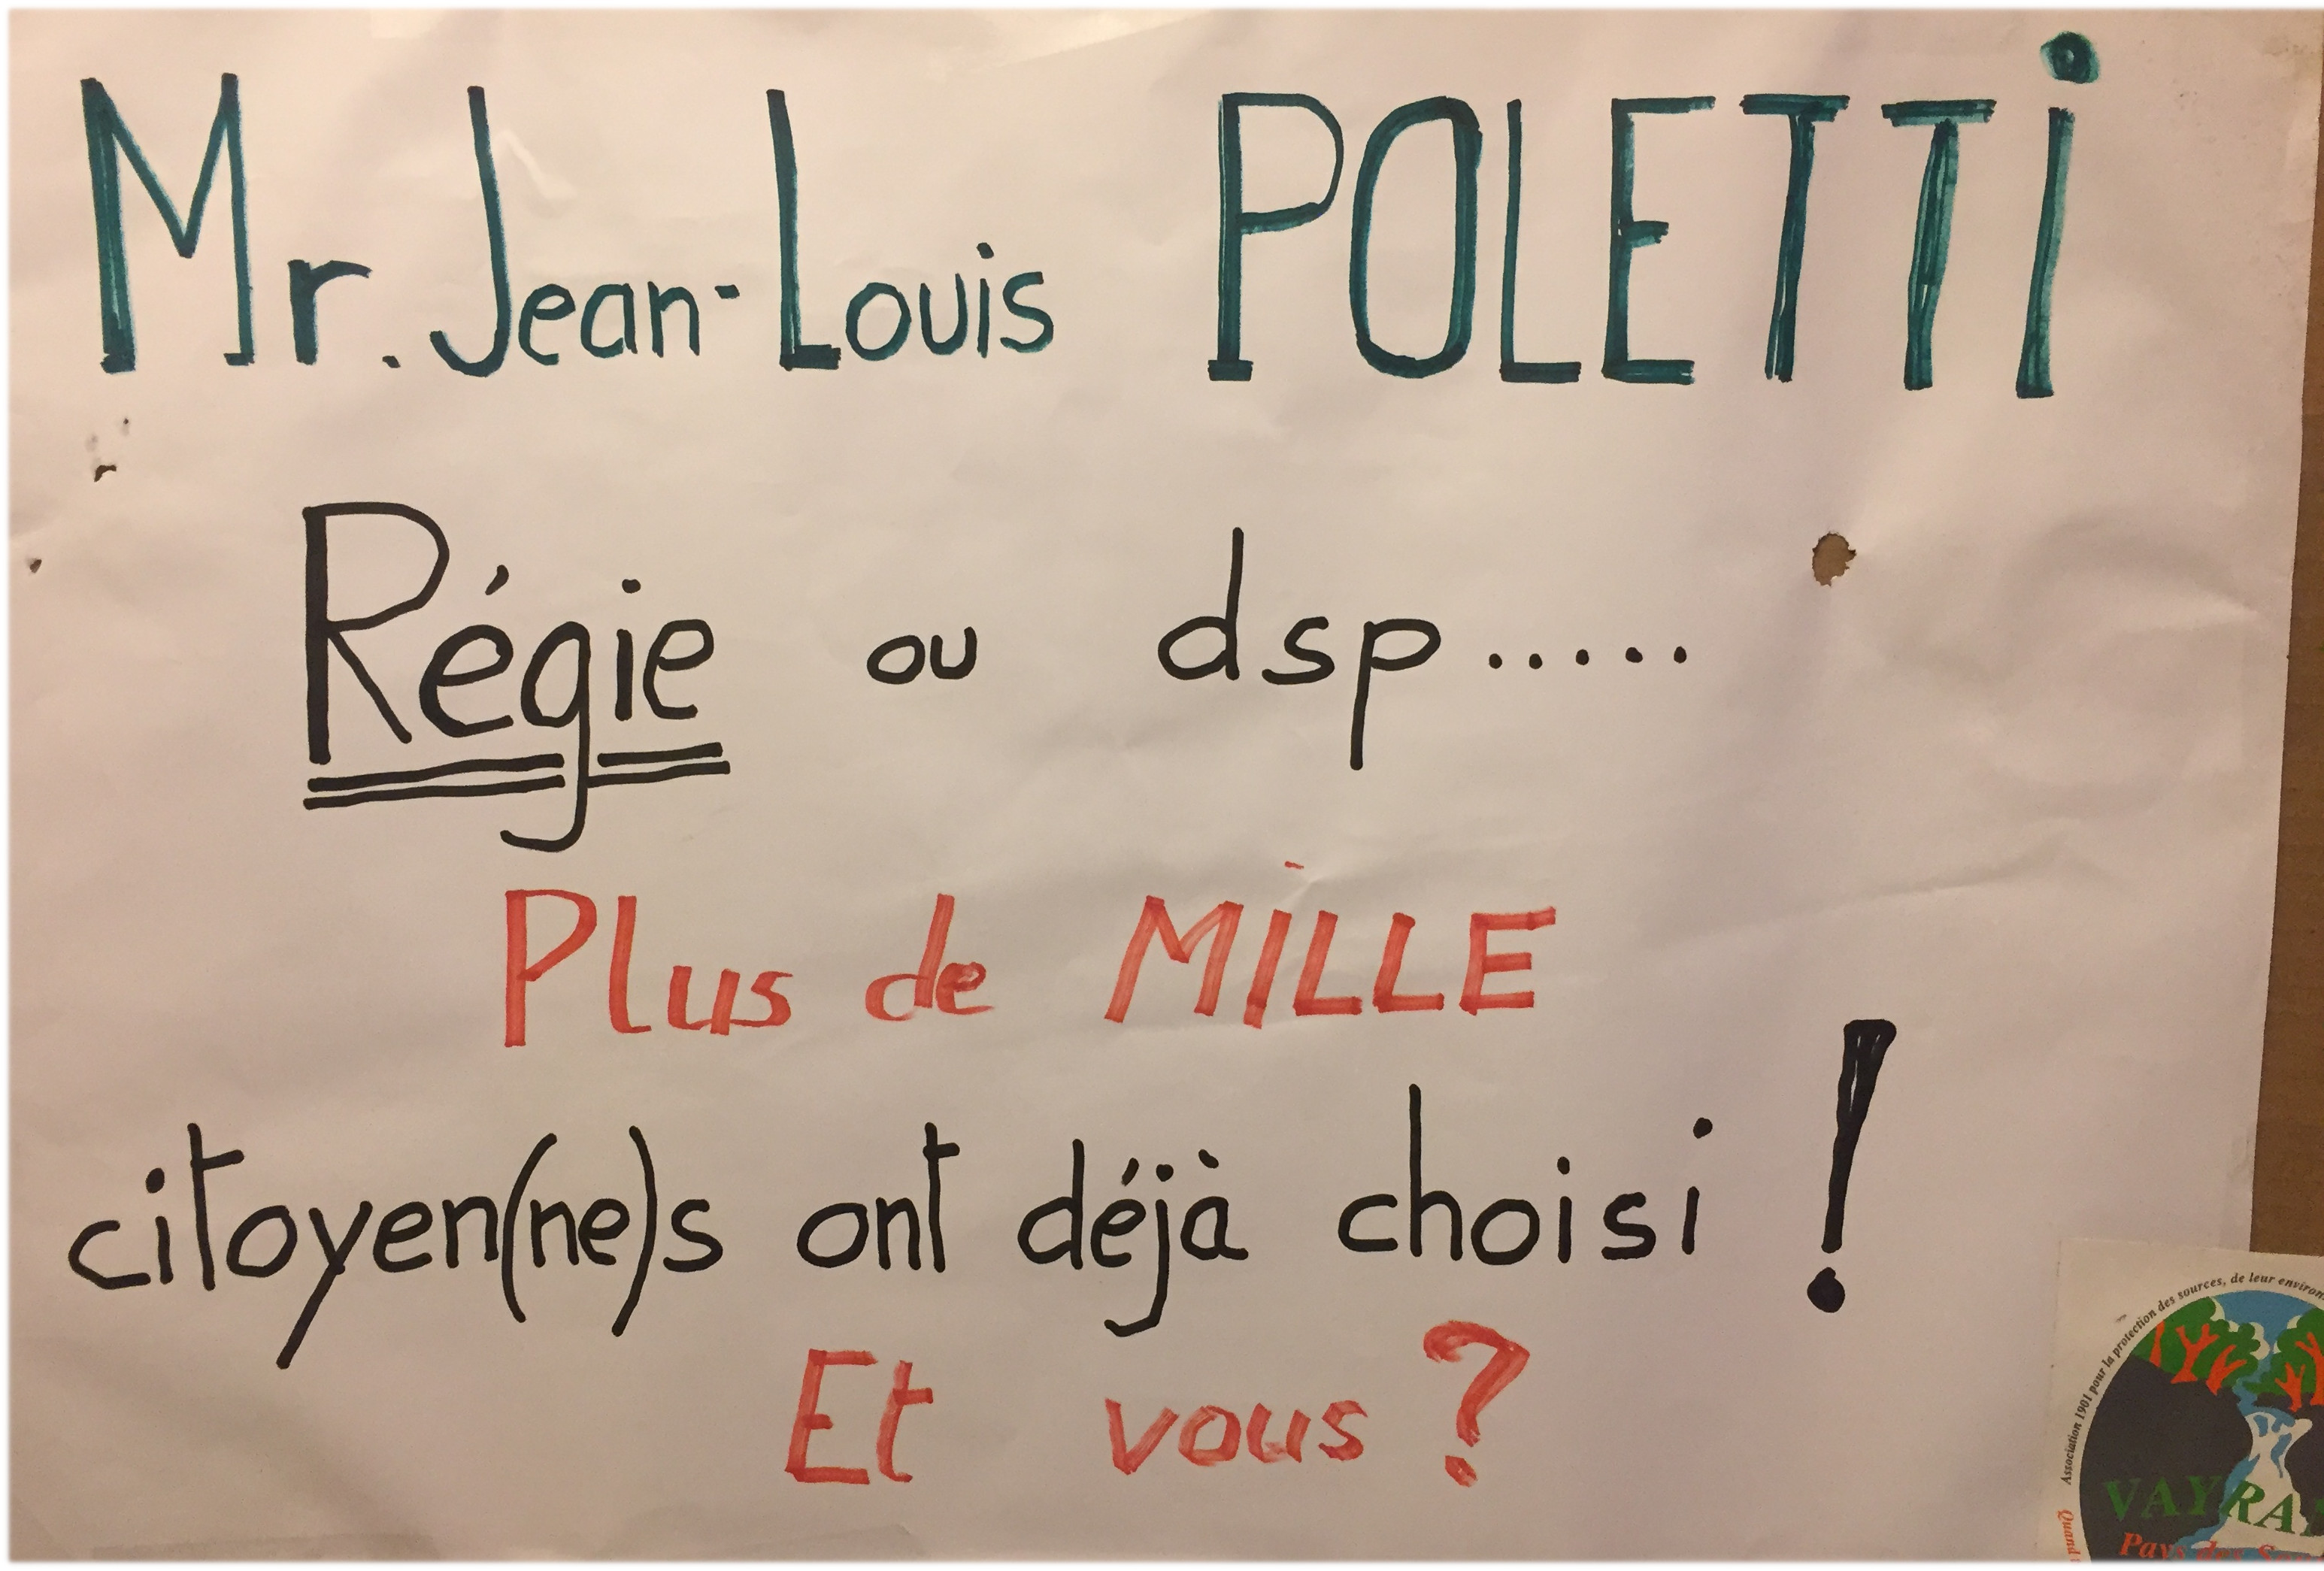 Mr. Jean-Louis POLETTi
Régie ou dsp.....
Plus de MiLLE
citoyen(ne)s ont déjà choisi !
Et vous ?
Association 1901 pour la protection des sources, de leur
Quand
Pays des